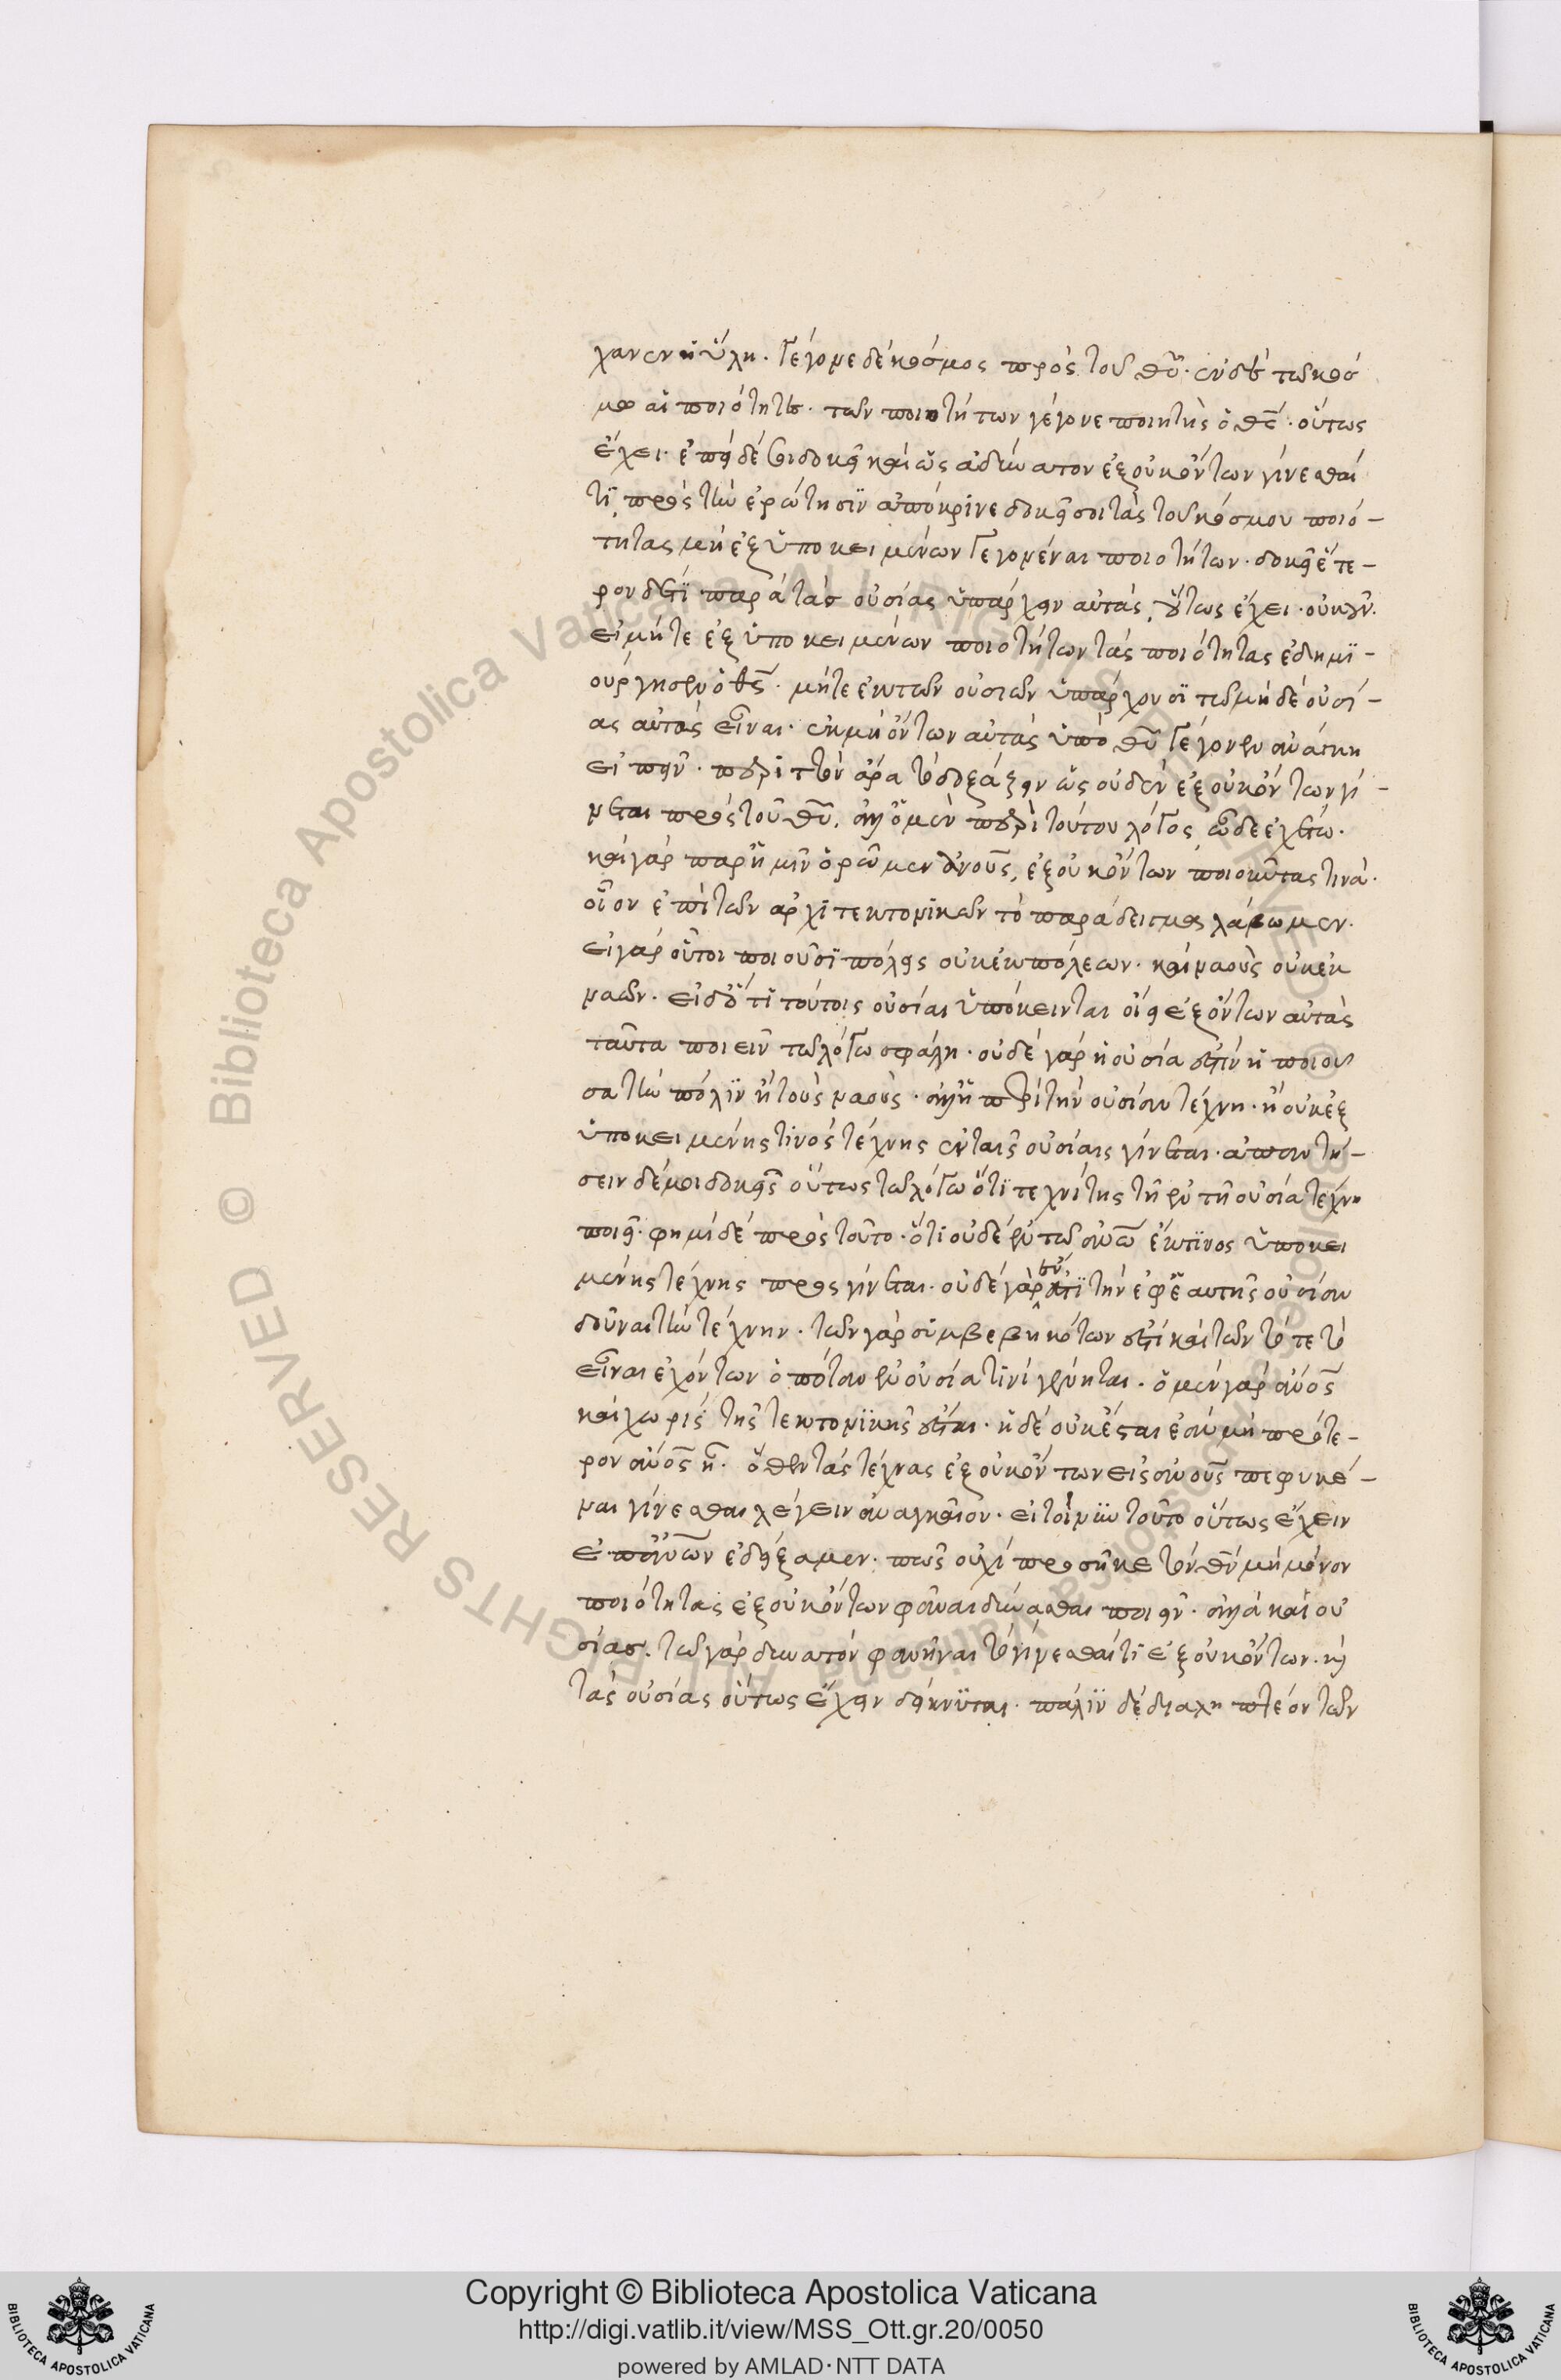 χαν ἐν ἡ ὕλη. γέγονε δὲ κόσμος πρὸς τοῦ θῦ. ἐν δὲ τῶ κόσ
μω αἱ ποιότητες. τῶν ποιοτήτων γέγονε ποιητὴς ὁ θς. οὕτως
ἔχει. ἐπεὶ δέ σοι δοκεῖ καὶ ὡς ἀδύνατον ἐξ οὐκ ὄντων γίνεσθαί
τι, πρὸς τὴν ἐρώτησιν ἀπόκρινε δοκεῖ σοι τὰς τοῦ κόσμου ποιό-
τητας μὴ ἐξ ὑποκειμένων γεγονέναι ποιοτήτων. δοκεῖ ἕτε-
ρον δέ τι παρὰ τὰς οὐσίας ὑπάρχειν αὐτάς, οὕτως ἔχει. οὐκοῦν.
εἰ μήτε ἐξ ὑποκειμένων ποιοτήτων τὰς ποιότητας ἐδημι-
ούργησεν ὁ θς. μήτε ἐκ τῶν οὐσιῶν ὑπάρχουσι τῶ μὴ δὲ οὐσί-
ας αὐτὰς εἶναι. ἐκ μὴ ὄντων αὐτὰς ὑπὸ θῦ γεγονέναι ἀνάγκη
εἰπεῖν. περιττὸν ἄρα τὸ δοξάζειν ὡς οὐδὲν ἐξ οὐκ ὄντων γί-
νεται πρὸς τοῦ θῦ. ἀλλ' ὁ μὲν περὶ τούτου λόγος, ὧδε ἐχέτω.
καὶ γὰρ παρ' ἡμῖν ὁρῶμεν ἀνους, ἐξ οὐκ ὄντων ποιοῦντας τινά.
οἷον ἐπὶ τῶν ἀρχιτεκτονικῶν τὸ παράδειγμα λάβωμεν.
εἰ γὰρ οὗτοι ποιοῦσι πόλεις οὐκ ἐκ πόλεων. καὶ ναοὺς οὐκ ἐκ
ναῶν. εἰ δ' ὅτι τούτοις οὐσίαι ὑπόκεινται οἴει ἐξ ὄντων αὐτὰς
ταῦτα ποιεῖν τῶ λόγω σφάλη. οὐδὲ γὰρ ἡ οὐσία ἐστὶν ἡ ποιοῦ
σα τὴν πόλιν ἢ τοὺς ναούς. ἀλλ' ἡ περὶ τὴν οὐσίαν τέχνη. ἢ οὐκ ἐξ
ὑποκειμένης τινὸς τέχνης ἐν ταῖς οὐσίαις γίνεται. ἀπαντή-
σειν δέ μοι δοκεῖς οὕτως τῶ λόγω ὅτι τεχνίτης τῆ ἐν τῆ οὐσία τέχνη
ποιεῖ. φημὶ δὲ πρὸς τοῦτο. ὅτι οὐδὲ ἐν τῶ ἀνω ἔκ τινος ὑποκει
μένης τέχνης προσγίνεται. οὐδὲ γὰρ ἐν ἔστι τὴν ἐφ' ἑαυτῆς οὐσίαν
δοῦναι τὴν τέχνην. τῶν γὰρ συμβεβηκότων ἐστὶ καὶ τῶν τότε τὸ
εἶναι ἐχόντων ὁπόταν ἐν οὐσία τινὶ γένηται. ὁ μὲν γὰρ ἀνος
καὶ χωρὶς τῆς τεκτονικῆς ἔσται. ἡ δὲ οὐκ ἔσται ἐὰν μὴ πρότε-
ρον ἀνος ἦ. ὅθεν τὰς τέχνας ἐξ οὐκ ὄντων εἰς ἀνους πεφυκέ-
ναι γίνεσθαι λέγειν ἀναγκαῖον. εἰ τοίνυν τοῦτο οὕτως ἔχειν
ἐπ' ἀνων ἐδείξαμεν. πῶς οὐχὶ προσῆκε τὸν θν μὴ μόνον
ποιότητας ἐξ οὐκ ὄντων φᾶναι δύνασθαι ποιεῖν. ἀλλὰ καὶ οὐ
σίας. τῶ γὰρ δυνατὸν φανῆναι τὸ γίνεσθαί τι ἐξ οὐκ ὄντων. καὶ
τὰς οὐσίας οὕτως ἔχειν δείκνυται. πάλιν δὲ διαλη πτέον τῶν
Copyright © Biblioteca Apostolica Vaticana
http://digi.vatlib.it/view/MSS_Ott.gr.20/0050
powered by AMLAD·NTT DATA